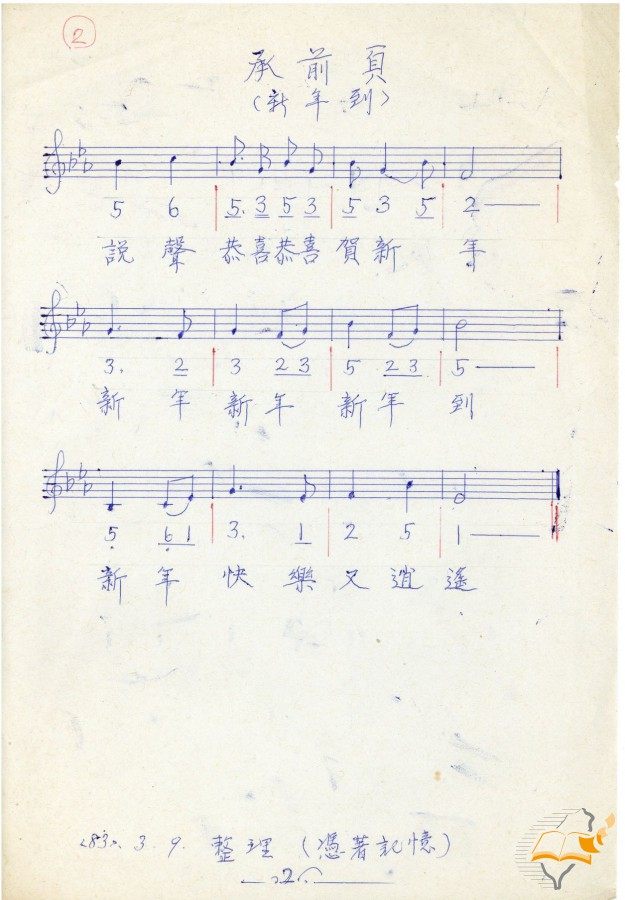 2
承前頁
(新年到)
5 6 5. 3 5 3 5 3 5 2 ——
說聲恭喜恭喜賀新年
3. 2 3 2 3 5 2 3 5 ——
新年新年新年到
5 6 1 3. 1 2 5 1 ——
新年快樂又逍遙
83. 3. 9. 整理(憑著記憶)
2